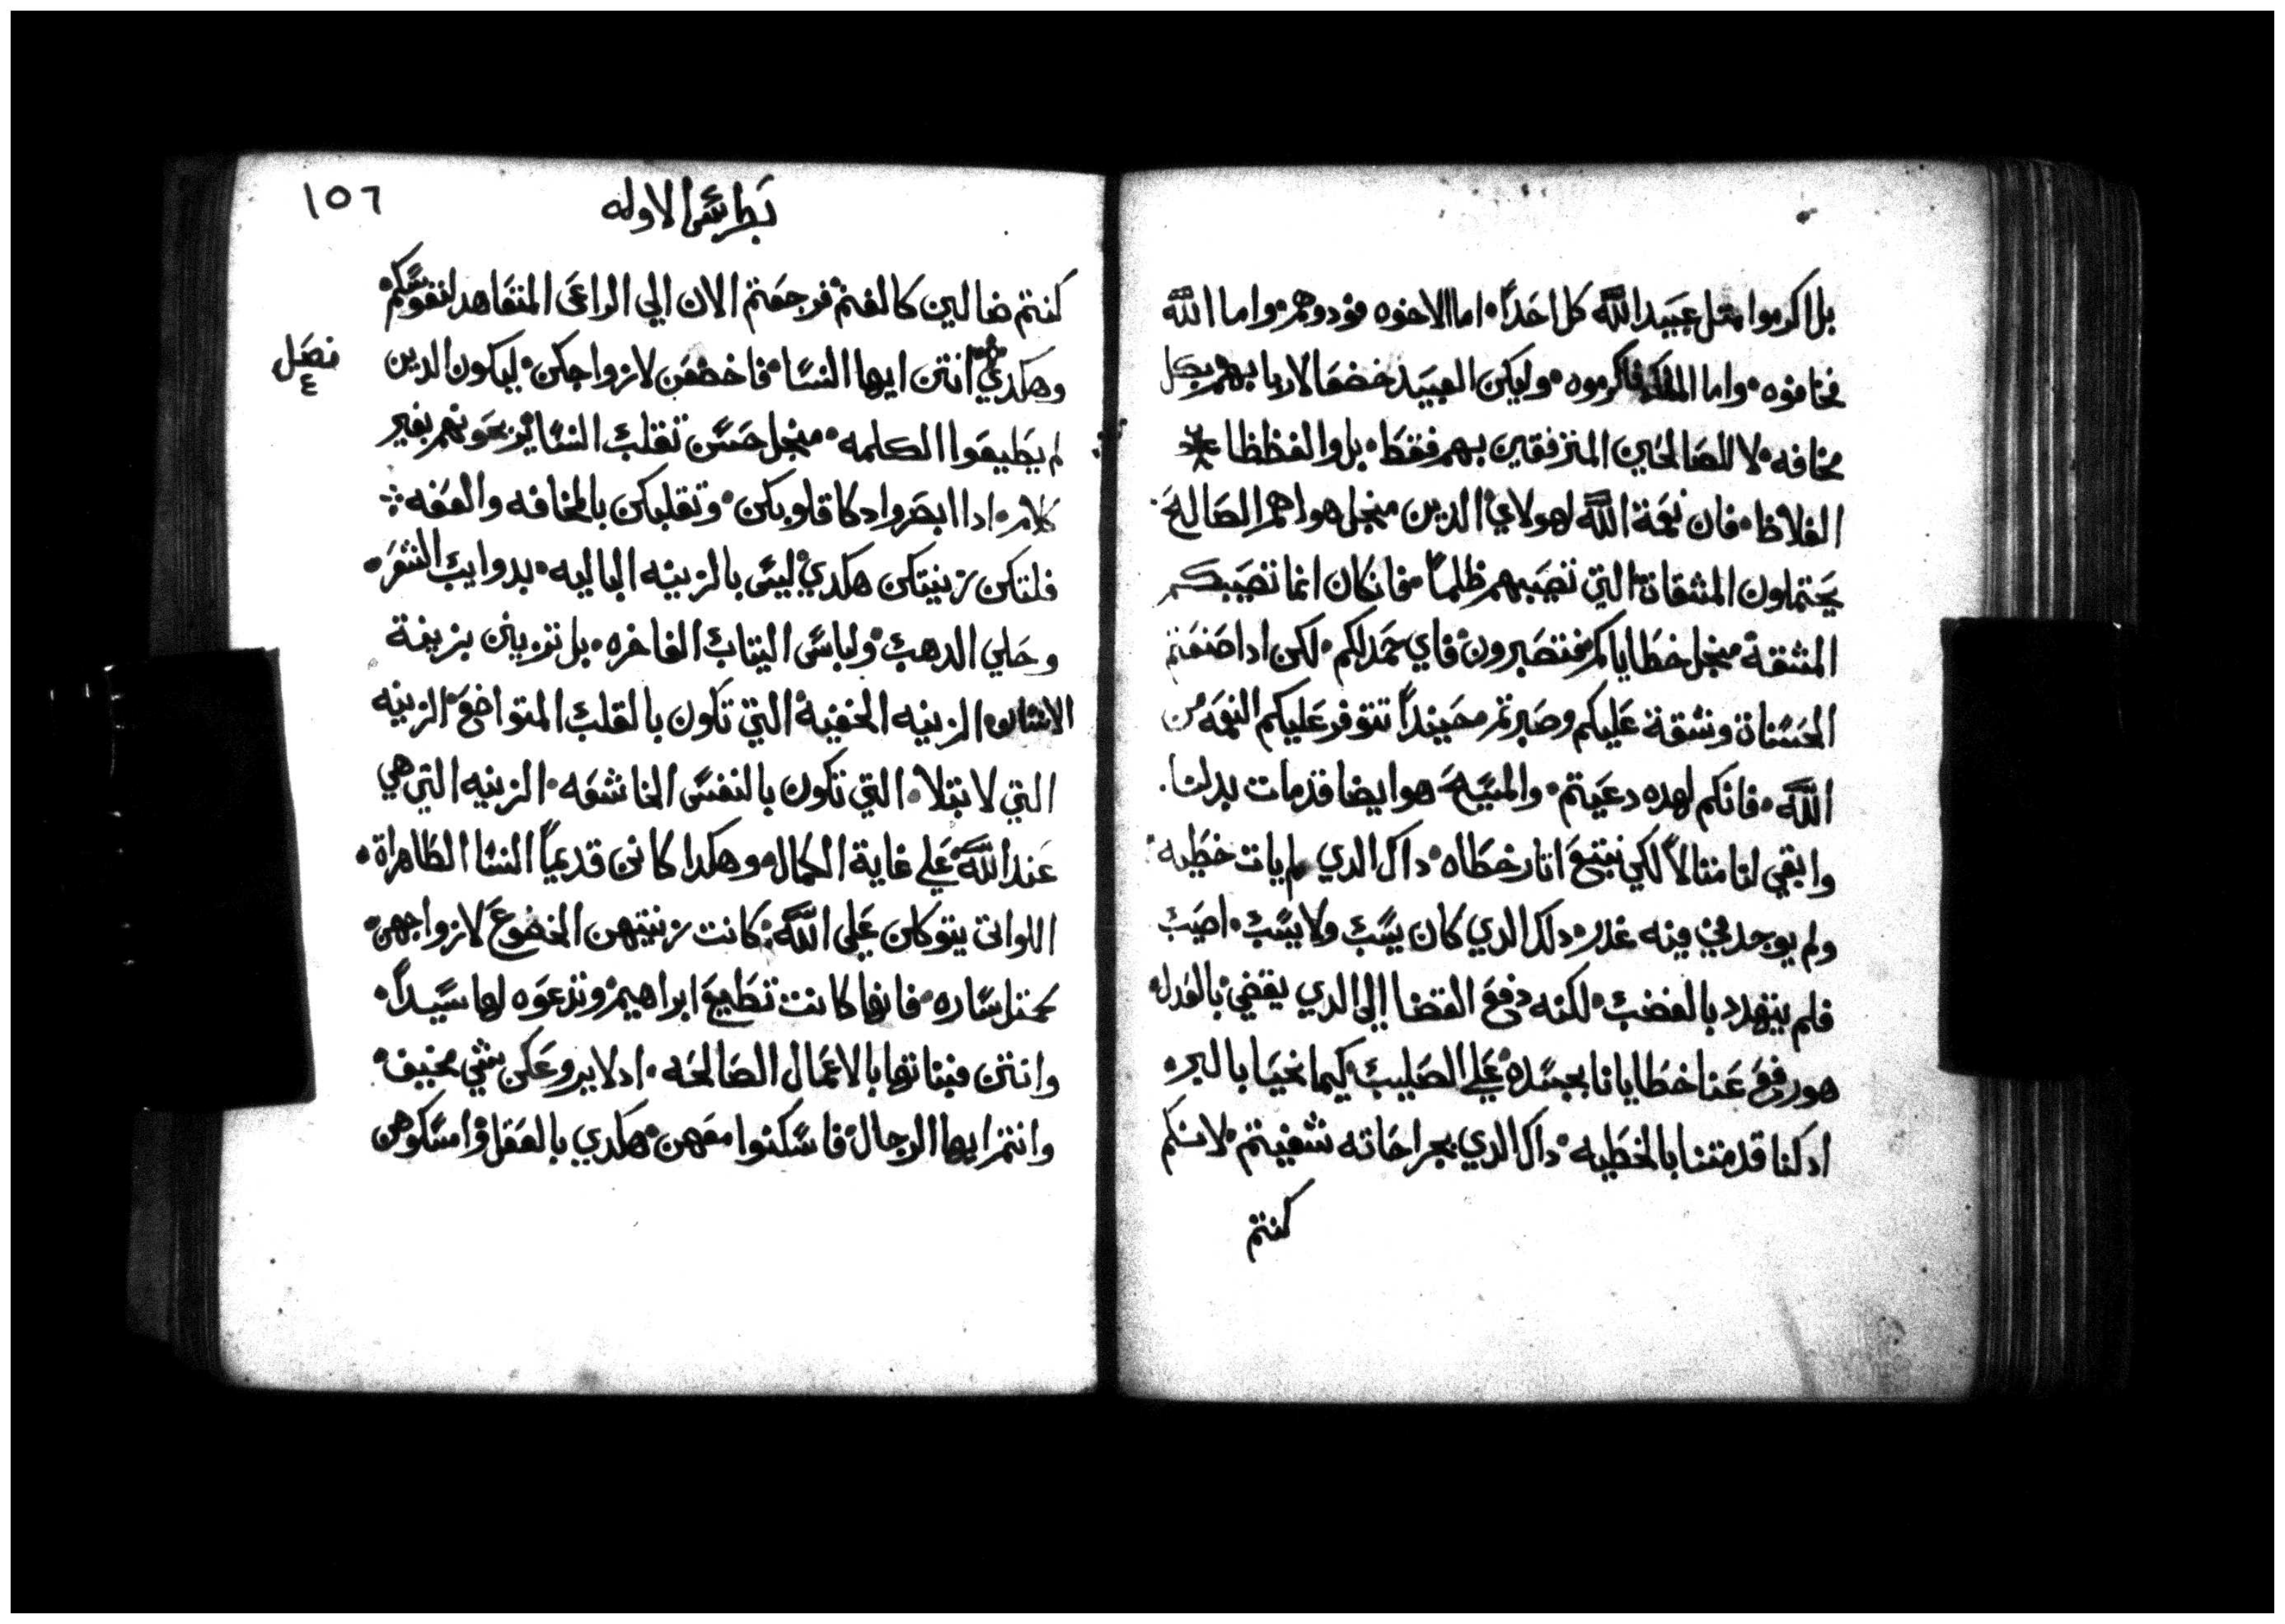 بل اكرموا متل عبيد الله كل احداً. اما الاخوه فودوهم. واما الله
فخافوه. واما الملك فاكرموه. وليكن العبيد خضعا لاربابهم بكل
مخافه. لا للصالحين المترفقين بهم فقط. بل والفظظا
الغلاظ. فان نعمة الله لهولاي الدين منجل هواهم الصالح.
يحتملون المشقاة التي تصيبهم ظلماً. فان كان انما تصيبكم
المشقة منجل خطاياكم فتصبرون. فاي حمد لكم. لكن ادا صنعتم
الحسناة وشقة عليكم وصبرتم. فحينداً تتوفر عليكم النعمه من
الله. فانكم لهده دعيتم. والمسيح هو ايضا قد مات بدلنا.
وابقي لنا متالاً لكي نتبع اتار خطاه. داك الدي لم يات خطيه.
ولم يوجد في فيه غدر. دلك الدي كان يسب ولا يسب. اصيب
فلم يتهدد بالغضب. لكنه دفع القضا الى الدي يقضي بالعدل.
هو رفع عنا خطايانا بجسده على الصليب كيما نحيا بالبر.
اد كنا قد متنا بالخطيه. داك الدي بجراحاته شفيتم. لانكم
كنتم
١٥٦
بطرس الاوله
كنتم ضالين كالغنم. فرجعتم الان الي الراعى المتعاهد لنفوسكم.
فصل
٤
وهكدي انتن ايها النسا. فاخضعن لازواجكن. ليكون الدين
لم يطيعوا الكلمه. منجل حسن تقلب النسا يربحونهم بغير
كلام. ادا ابصروا دكا قلوبكن. وتقلبكن بالمخافه والعفه
فلتكن زينتكن هكدي. ليس بالزينه الباليه. بدوايب الشعر.
وحلي الدهب. ولباس التياب الفاخره. بل تزين بزينة
الانسان الزينه الخفية. التي تكون بالقلب المتواضع. الزينه
التي لا تبلا. التي تكون بالنفس الخاشعه. الزينه التي هي
عند الله على غاية الكمال. وهكدا كانن قديماً النسا الطاهراة.
اللواتى يتوكلن على الله. كانت زينتهن الخضوع لازواجهن.
كمتل ساره. فانها كانت تطيع ابراهيم. وتدعوه لها سيداً.
وانتن فبناتها بالاعمال الصالحه. اد لا يروعكن شي مخيف.
وانتم ايها الرجال. فاسكنوا معهن. هكدي بالعقل. وامسكوهن